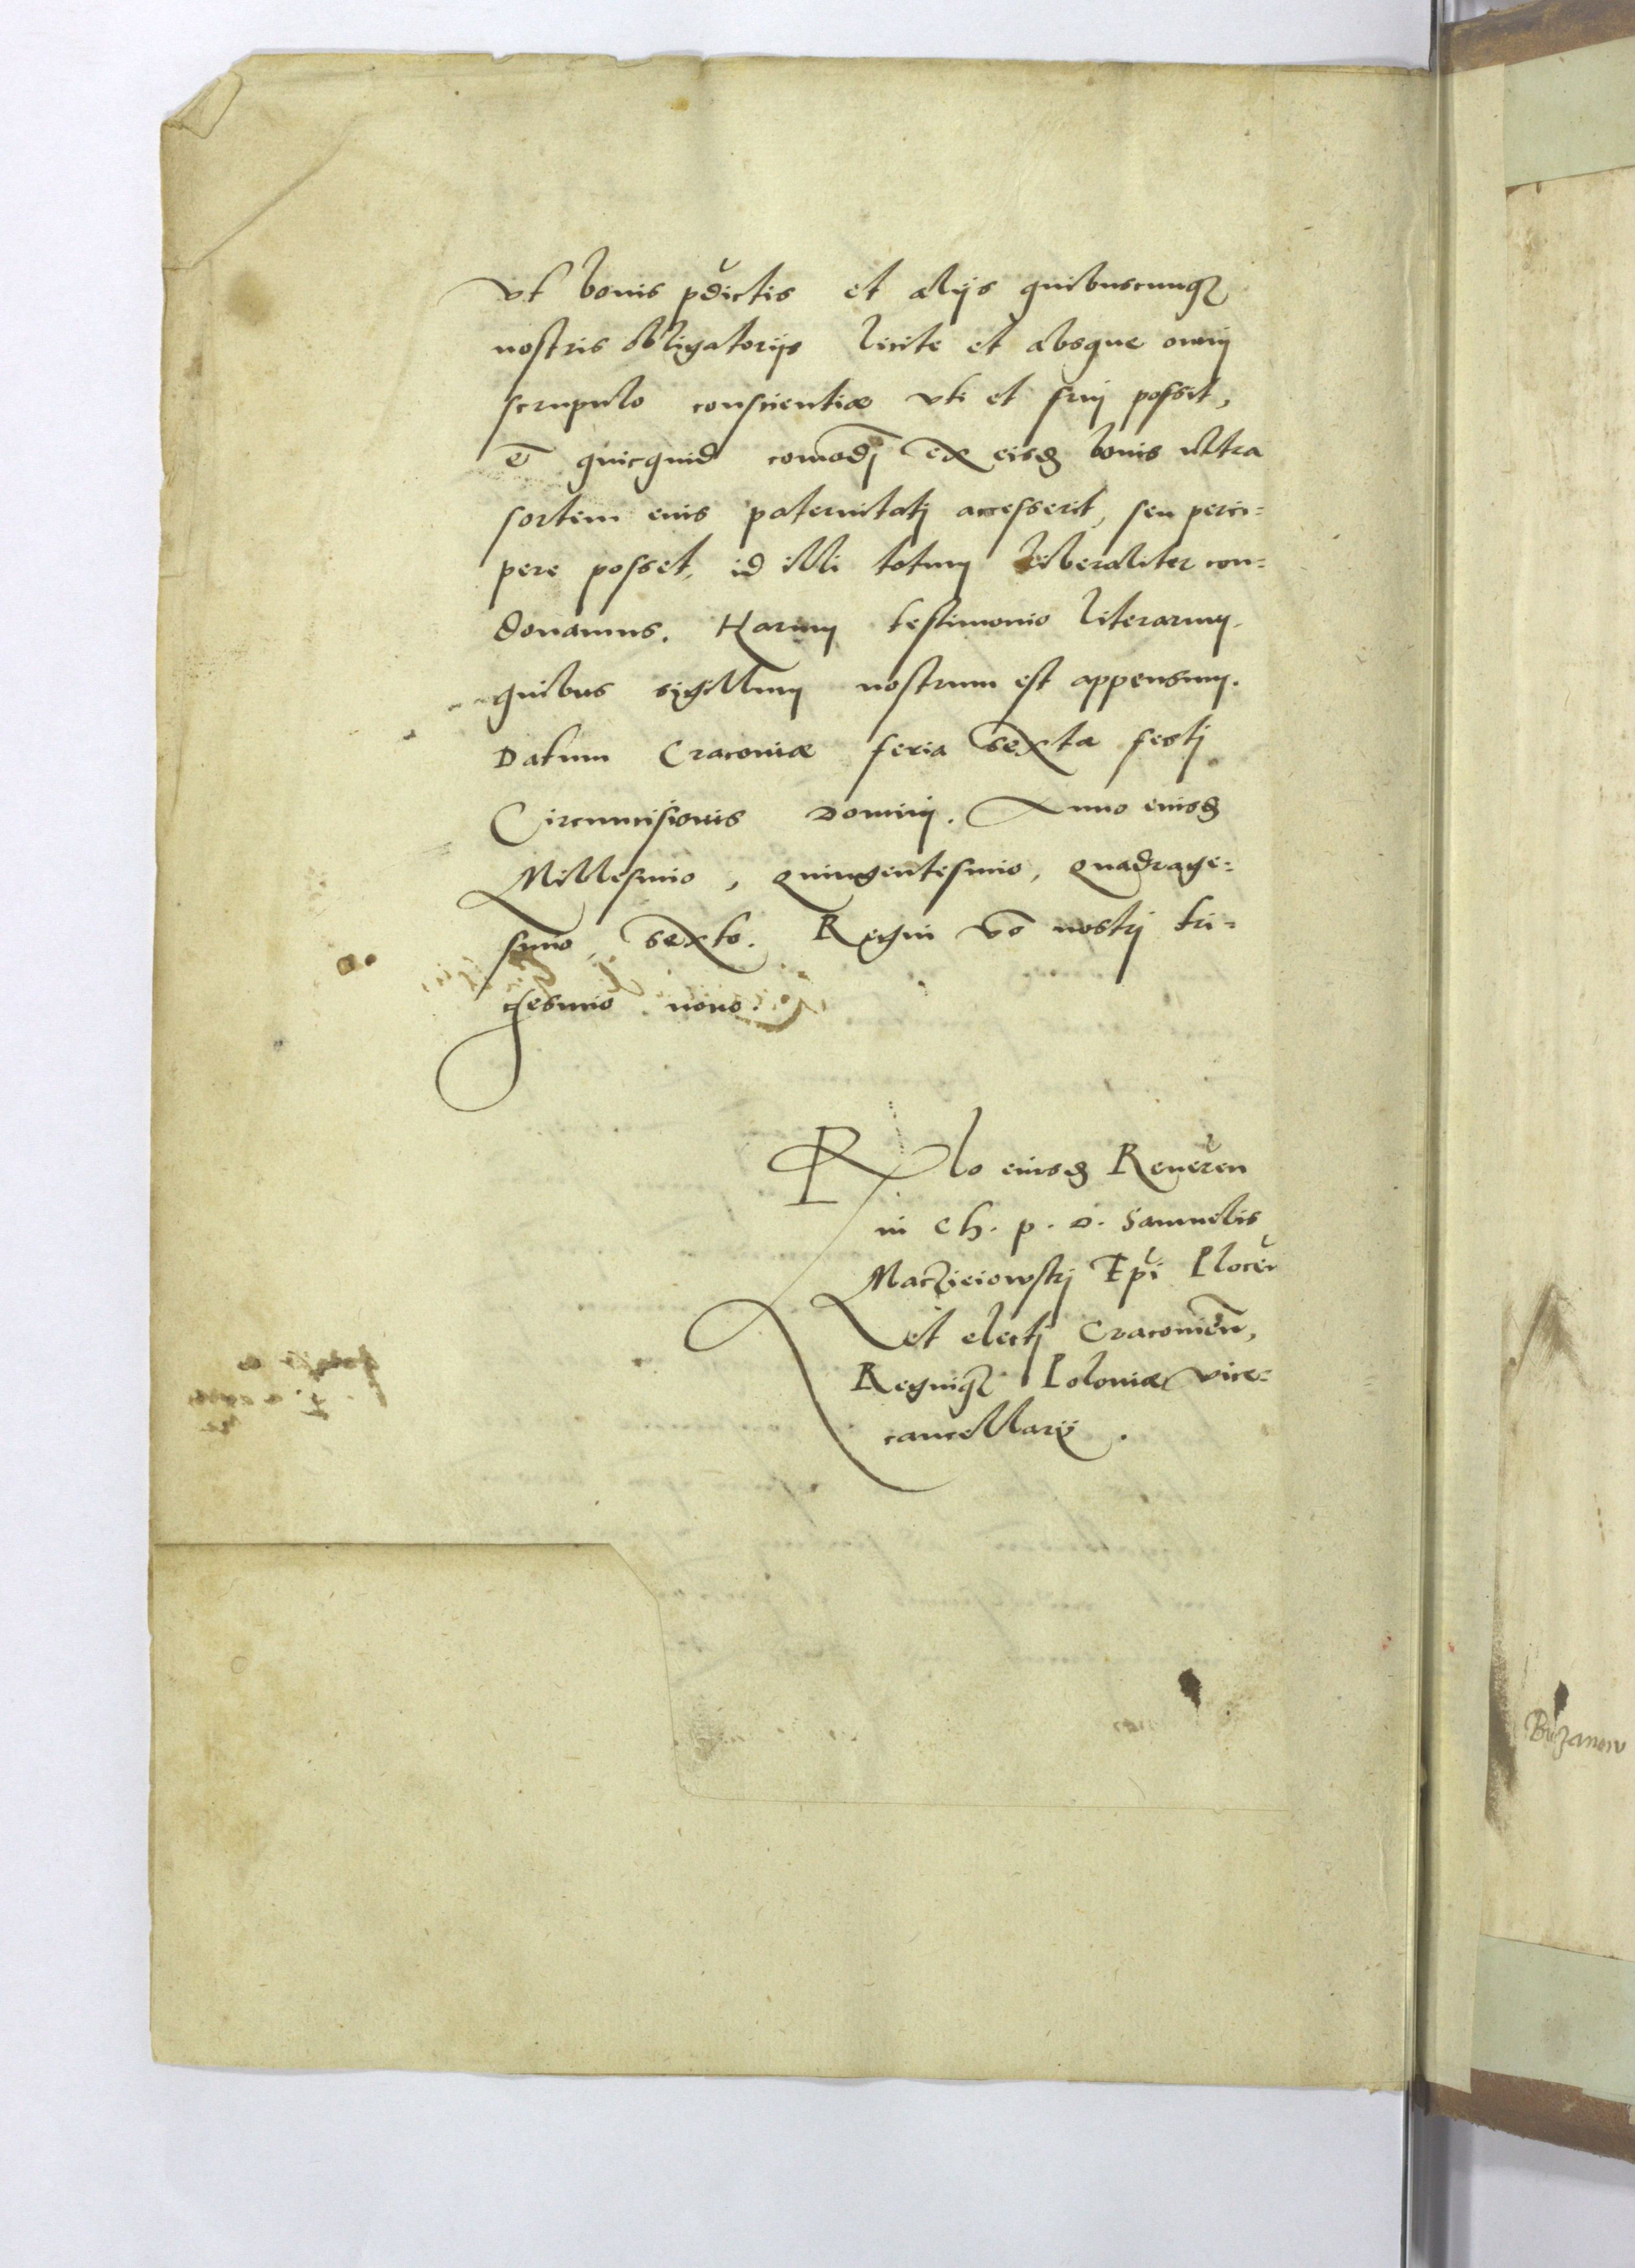 vt bonis pdictis et alijs quibuscunqȝ
nostris obligatorijs licite et absque omnj
scrupulo conscientiæ vti et fruj possit,
et quicquid comodj ex eisd bonis ultra
sortem eius paternitatj accesserit, seu perci=
pere posset, id illi totum liberaliter con=
donamus. Harum testimonio literarum.
quibus sigillum nostrum est appensum.
Datum Cracoviæ feria sexta festj
Circumcisionis Dominj. Anno eiusd
Millesimo, quingentesimo, quadrage=
simo, sexto. Regni vo nostrj tri=
gesimo nono.
Rlo eiusd Reveren
in Ch. p. D. Samuelis
Maczieiowskj Epi Plocen
et electj Cracovien,
Regniqȝ Poloniæ vice=
cancellarij.